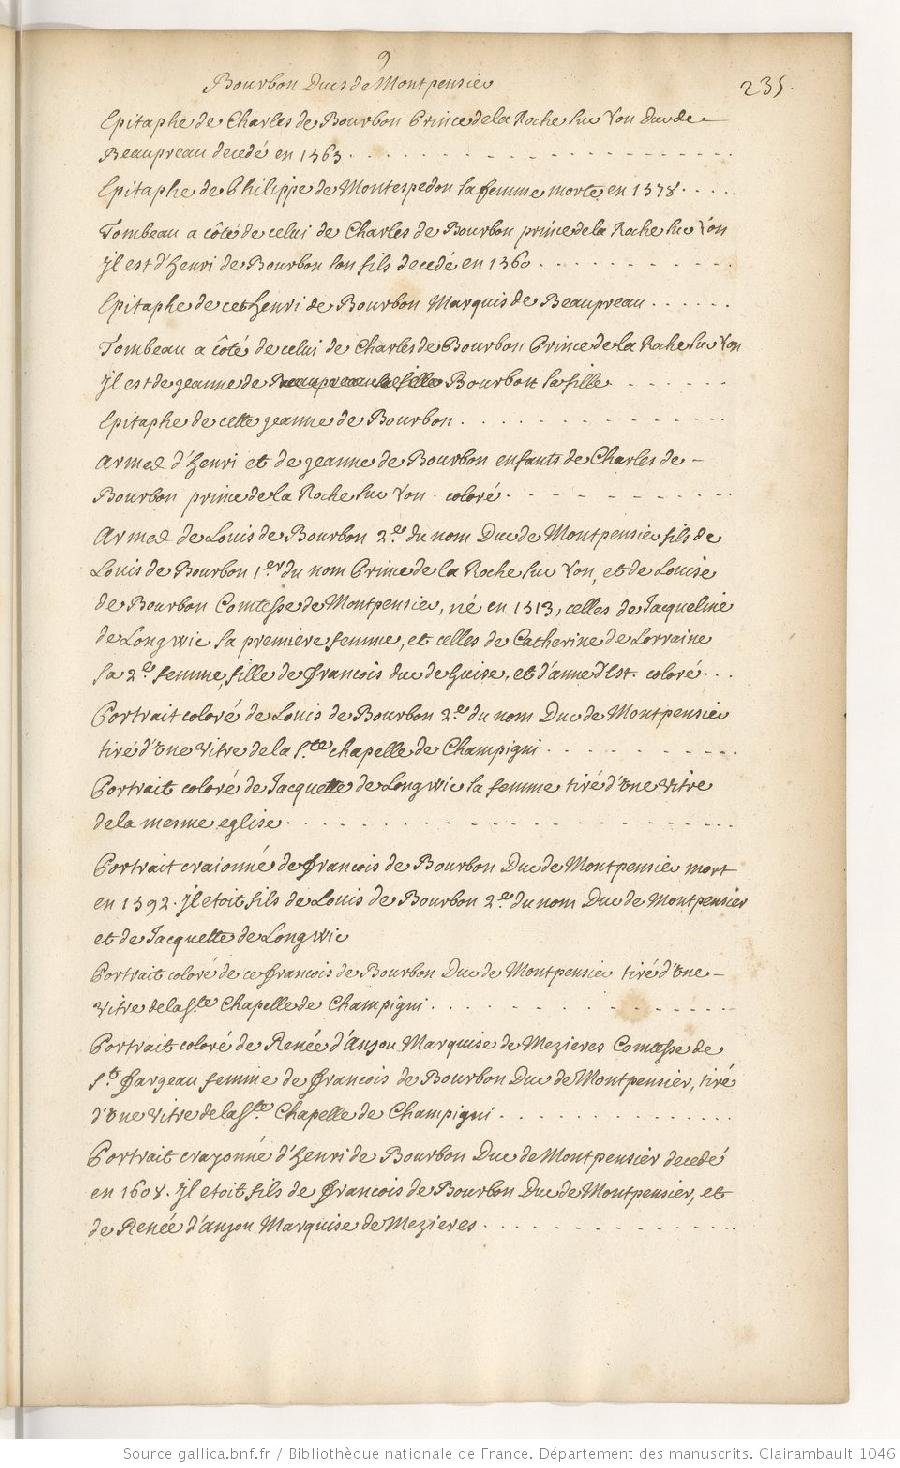 9
Bourbon Ducs de Montpensier
235.
Epitaphe de Charles de Bourbon Prince de la Roche sur Yon Duc de
Beaupreau decedé en 1565
Epitaphe de Philippe de Montespedon sa femme morte en 1578
Tombeau a côté de celui de Charles de Bourbon prince de la Roche sur Yon
Jl est d'henri de Bourbon son fils decedé en 1560
Epitaphe de cet henri de Bourbon Marquis de Beaupreau
Tombeau a côté de celui de Charles de Bourbon Prince de la Roche sur Yon
Jl est de jeanne de Bourbon sa fille
Epitaphe de cette jeanne de Bourbon
Armes d'henri et de jeanne de Bourbon enfants de Charles de
Bourbon prince de la Roche sur Yon coloré
Armes de Louis de Bourbon 2.e du nom Duc de Montpensier fils de
Louis de Bourbon 1.er du nom Prince de la Roche sur Yon, et de Louise
de Bourbon Comtesse de Montpensier, né en 1513, celles de Jacqueline
de Longwic sa première femme, et celles de Catherine de Lorraine
sa 2.e femme, fille de françois duc de Guise, et d'anne d'Est. coloré
Portrait coloré de Louis de Bourbon 2.e du nom Duc de Montpensier
tiré d'une vitre de la S.te chapelle de Champigni
Portrait coloré de Jacquette de Longwic sa femme tiré d'une vitre
de la mesme eglise
Portrait craionné de françois de Bourbon Duc de Montpensier mort
en 1592. Jl etoit fils de Louis de Bourbon 2.e du nom Duc de Montpensier
et de Jacquette de Longwic
Portrait coloré de ce françois de Bourbon Duc de Montpensier tiré d'une
vitre de la S.te Chapelle de Champigni
Portrait coloré de Renée d'Anjou Marquise de Mezieres Comtesse de
S.t Fargeau femme de françois de Bourbon Duc de Montpensier, tiré
d'une vitre de la S.te Chapelle de Champigni
Portrait crayonné d'henri de Bourbon Duc de Montpensier decedé
en 1608. Jl etoit fils de françois de Bourbon Duc de Montpensier, et
de Renée d'anjou Marquise de Mezieres
Source gallica.bnf.fr / Bibliothèque nationale de France. Département des manuscrits. Clairambault 1046